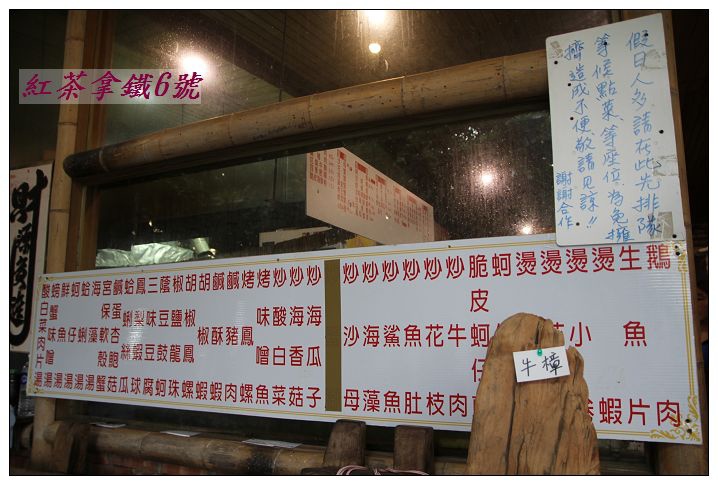 紅茶拿鐵6號
假日人多請在此先排隊
等候點菜等座位為免擁
擠造成不便敬請見諒!!
謝謝合作
鵝肉
生魚片
燙小蝦
燙
燙
燙
蚵
脆皮蚵仔
炒牛肉
炒花枝
炒魚肚
炒鯊魚
炒海藻
炒沙母
炒海瓜子
炒海香菇
炒酸白菜
烤味噌魚
烤鳳螺
鹹豬肉
鹹酥蝦
胡椒蝦
胡椒鳳螺
椒鹽龍珠
蔭豆鼓蚵
三味豆腐
鳳梨蝦球
蛤蜊絲瓜
鹹蛋杏鮑菇
宮保軟殼蟹
海藻湯
蛤蜊湯
蚵仔湯
鮮魚湯
螃蟹味噌湯
酸白菜肉片湯
牛樟